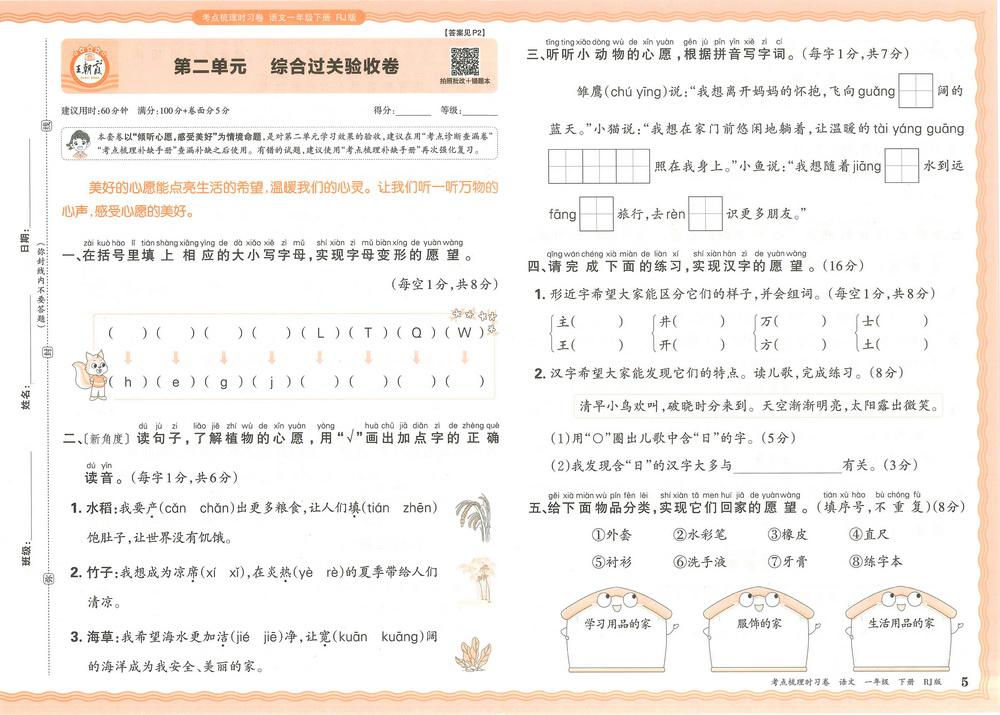 考点梳理时习卷 语文一年级下册 RJ版
【答案见P2】
王朝霞
第二单元 综合过关验收卷
拍照批改+错题本
建议用时:60分钟 满分:100分+卷面分5分 得分:______ 等级:______
本套卷以“倾听心愿,感受美好”为情境命题,是对第二单元学习效果的验收,建议在用“考点诊断查漏卷”
“考点梳理补缺手册”查漏补缺之后使用。有错的试题,建议使用“考点梳理补缺手册”再次强化复习。
美好的心愿能点亮生活的希望,温暖我们的心灵。让我们听一听万物的
心声,感受心愿的美好。
zài kuò hào lǐ tián shàng xiāng yìng de dà xiǎo xiě zì mǔ shí xiàn zì mǔ biàn xíng de yuàn wàng
一、在括号里填上相应的大小写字母,实现字母变形的愿望。
(每空1分,共8分)
( ) ( ) ( ) ( ) ( L ) ( T ) ( Q ) ( W )
( h ) ( e ) ( g ) ( j ) ( ) ( ) ( ) ( )
dú jù zi liǎo jiě zhí wù de xīn yuàn yòng huà chū jiā diǎn zì de zhèng què
二、〔新角度〕读句子,了解植物的心愿,用“√”画出加点字的正确
dú yīn
读音。(每字1分,共6分)
1. 水稻:我要产(cǎn chǎn)出更多粮食,让人们填(tián zhēn)
饱肚子,让世界没有饥饿。
2. 竹子:我想成为凉席(xí xǐ),在炎热(yè rè)的夏季带给人们
清凉。
3. 海草:我希望海水更加洁(jié jiē)净,让宽(kuān kuāng)阔
的海洋成为我安全、美丽的家。
日期:
姓名:
班级:
(弥封线内不要答题)
线
封
弥
tīng tīng xiǎo dòng wù de xīn yuàn gēn jù pīn yīn xiě zì cí
三、听听小动物的心愿,根据拼音写字词。(每字1分,共7分)
雏鹰(chú yīng)说:“我想离开妈妈的怀抱,飞向guǎng 阔的
蓝天。”小猫说:“我想在家门前悠闲地躺着,让温暖的tài yáng guāng
照在我身上。”小鱼说:“我想随着jiāng 水到远
fāng 旅行,去rèn 识更多朋友。”
qǐng wán chéng xià miàn de liàn xí shí xiàn hàn zì de yuàn wàng
四、请完成下面的练习,实现汉字的愿望。(16分)
1. 形近字希望大家能区分它们的样子,并会组词。(每空1分,共8分)
主( ) 井( ) 万( ) 士( )
王( ) 开( ) 方( ) 土( )
2. 汉字希望大家能发现它们的特点。读儿歌,完成练习。(8分)
清早小鸟欢叫,破晓时分来到。天空渐渐明亮,太阳露出微笑。
(1)用“○”圈出儿歌中含“日”的字。(5分)
(2)我发现含“日”的汉字大多与______________有关。(3分)
gěi xià miàn wù pǐn fēn lèi shí xiàn tā men huí jiā de yuàn wàng tián xù hào bù chóng fù
五、给下面物品分类,实现它们回家的愿望。(填序号,不重复)(8分)
①外套 ②水彩笔 ③橡皮 ④直尺
⑤衬衫 ⑥洗手液 ⑦牙膏 ⑧练字本
学习用品的家 服饰的家 生活用品的家
考点梳理时习卷 语文 一年级 下册 RJ版 5